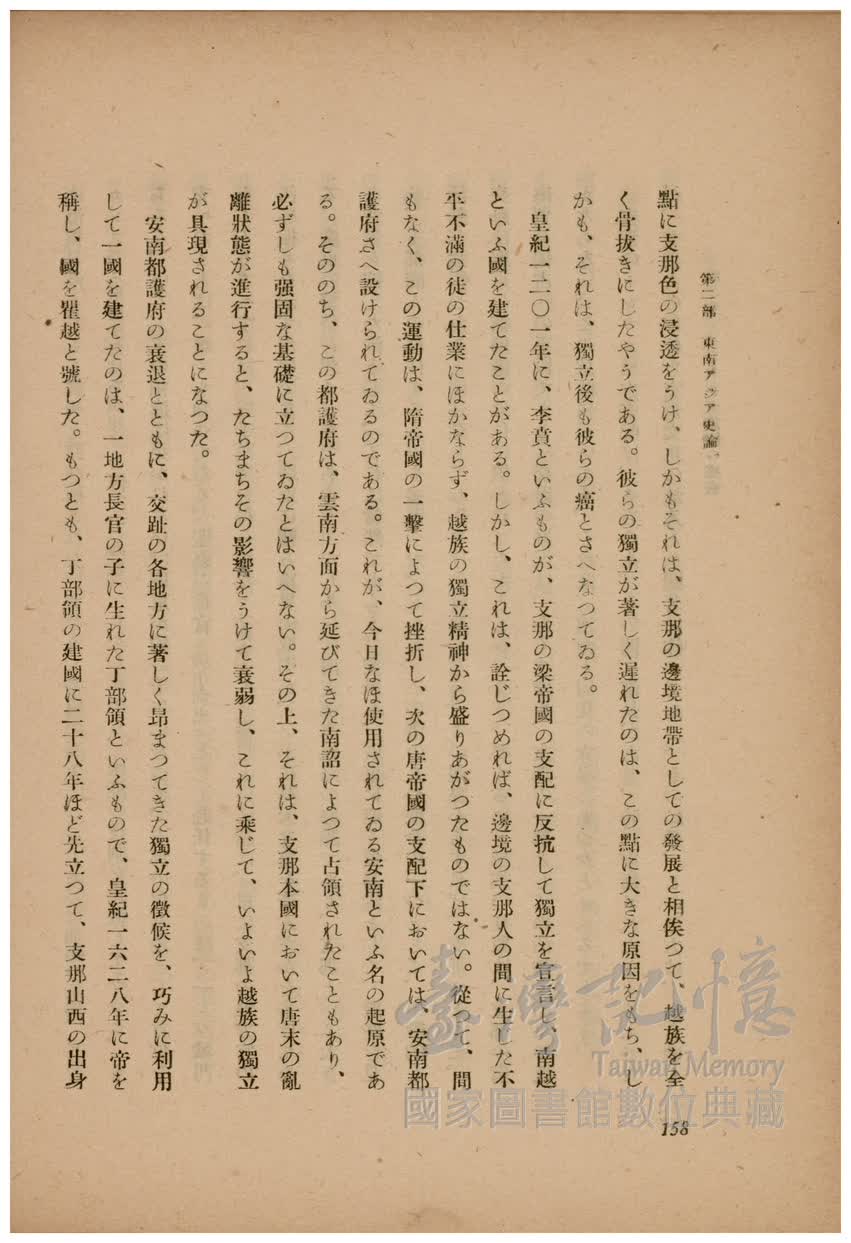 第二部 東南アジア史論
點に支那色の浸透をうけ、しかもそれは、支那の邊境地帶としての發展と相俟つて、越族を全
く骨拔きにしたやうである。彼らの獨立が著しく遲れたのは、この點に大きな原因をもち、し
かも、それは、獨立後も彼らの癌とさへなつてゐる。
皇紀一二〇一年に、李賁といふものが、支那の梁帝國の支配に反抗して獨立を宣言し、南越
といふ國を建てたことがある。しかし、これは、詮じつめれば、邊境の支那人の間に生じた不
平不滿の徒の仕業にほかならず、越族の獨立精神から盛りあがつたものではない。從つて、間
もなく、この運動は、隋帝國の一擊によつて挫折し、次の唐帝國の支配下においては、安南都
護府さへ設けられてゐるのである。これが、今日なほ使用されてゐる安南といふ名の起原であ
る。そののち、この都護府は、雲南方面から延びてきた南詔によつて占領されたこともあり、
必ずしも强固な基礎に立つてゐたとはいへない。その上、それは、支那本國において唐末の亂
離狀態が進行すると、たちまちその影響をうけて衰弱し、これに乘じて、いよいよ越族の獨立
が具現されることになつた。
安南都護府の衰退とともに、交趾の各地方に著しく昂まつてきた獨立の徵候を、巧みに利用
して一國を建てたのは、一地方長官の子に生れた丁部領といふもので、皇紀一六二八年に帝を
稱し、國を瞿越と號した。もつとも、丁部領の建國に二十八年ほど先立つて、支那山西の出身
臺灣記憶
Taiwan Memory
國家圖書館數位典藏
158